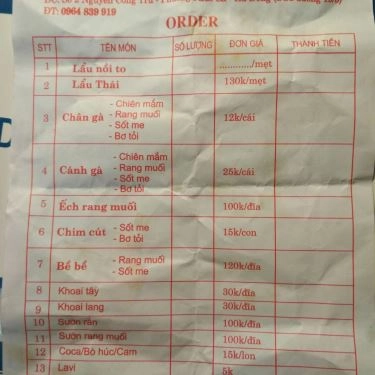 ĐT: 0964 839 919
ORDER
STT TÊN MÓN SỐ LƯỢNG ĐƠN GIÁ THÀNH TIỀN
1 Lẩu nồi to ............/mẹt
2 Lẩu Thái 130k/mẹt
3 Chân gà - Chiên mắm - Rang muối - Sốt me - Bơ tỏi 12k/cái
4 Cánh gà - Chiên mắm - Rang muối - Sốt me - Bơ tỏi 25k/cái
5 Ếch rang muối 100k/đĩa
6 Chim cút - Sốt me - Bơ tỏi 15k/con
7 Bề bề - Rang muối - Sốt me 120k/đĩa
8 Khoai tây 30k/đĩa
9 Khoai lang 30k/đĩa
10 Sườn rán 100k/đĩa
11 Sườn rang muối 100k/đĩa
12 Coca/Bò húc/Cam 15k/lon
13 Lavi 5k